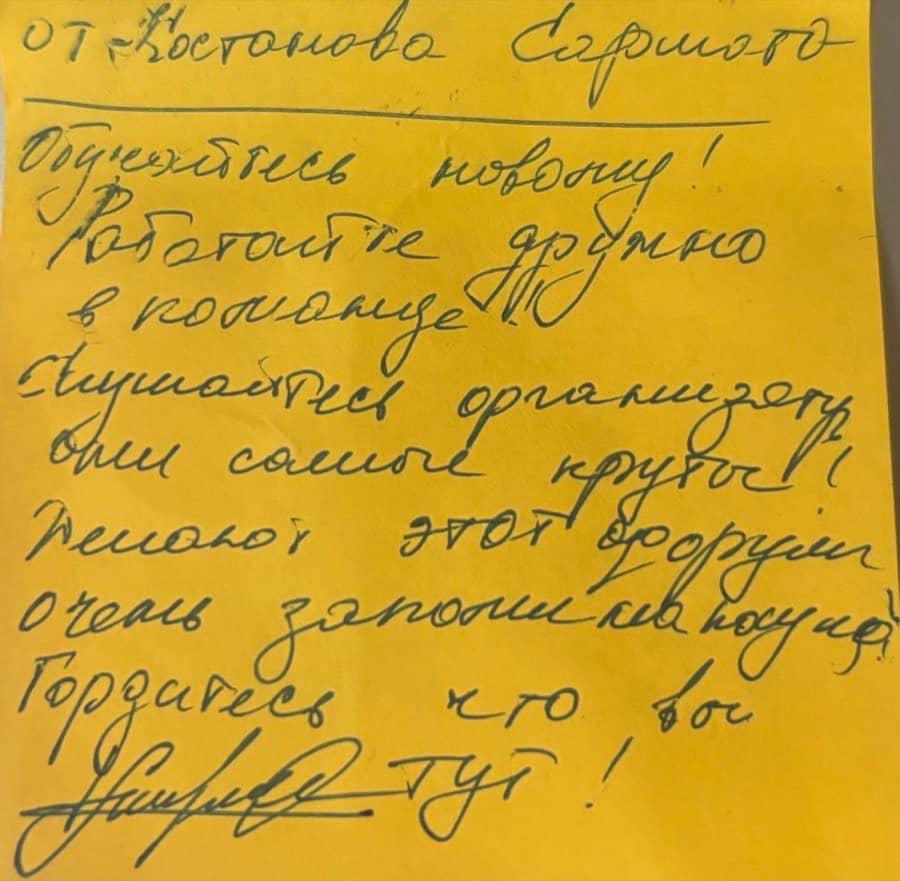 от Костанова Сармата
Обучайтесь новому!
Работайте дружно
в команде!
Слушайтесь организатр
они самые круты!
Делают этот форум
очень запоминающийся
Гордитесь что вы
тут!